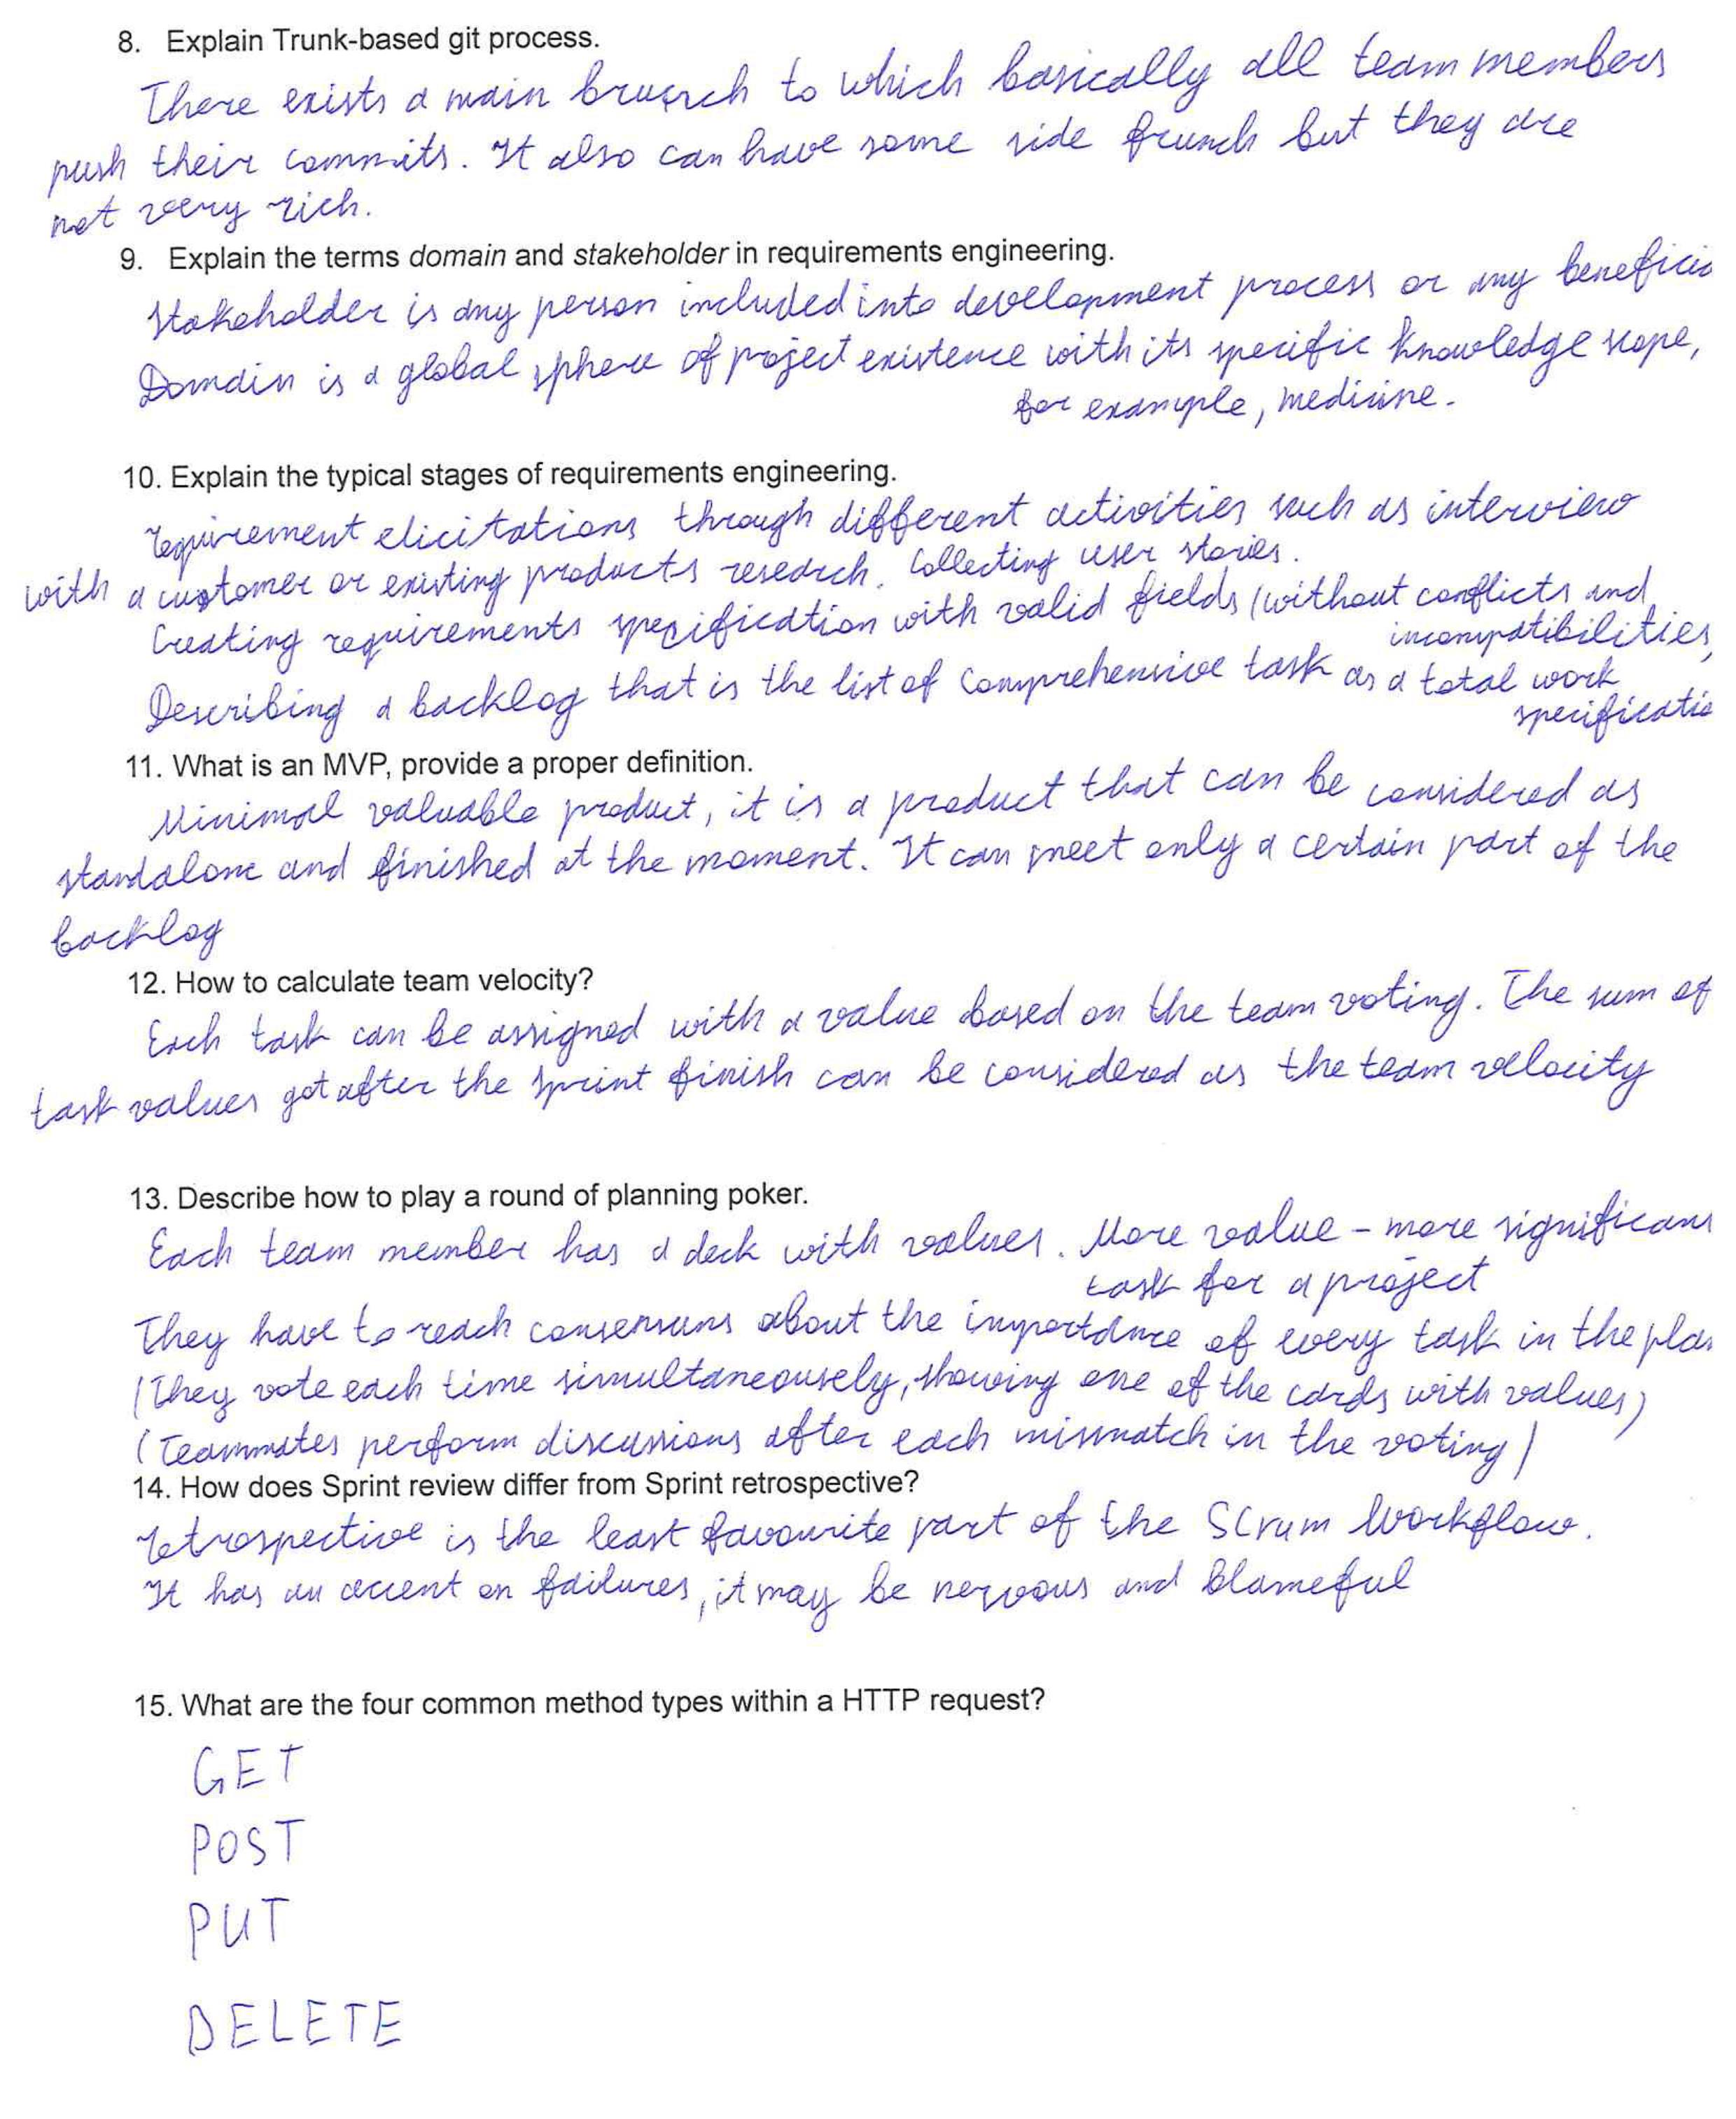 8. Explain Trunk-based git process.
There exists a main branch to which basically all team members
push their commits. It also can have some side brunch but they are
not very rich.
9. Explain the terms domain and stakeholder in requirements engineering.
Stakeholder is any person included into development process or any beneficia
Domain is a global sphere of project existence with its specific knowledge scope,
for example, medicine.
10. Explain the typical stages of requirements engineering.
requirement elicitations through different activities such as interview
with a customer or existing products research. Collecting user stories.
Creating requirements specification with valid fields (without conflicts and
incompatibilities,
Describing a backlog that is the list of comprehensive task as a total work
specificatio
11. What is an MVP, provide a proper definition.
Minimal valuable product, it is a product that can be considered as
standalone and finished at the moment. It can meet only a certain part of the
backlog
12. How to calculate team velocity?
Each task can be assigned with a value based on the team voting. The sum of
task values got after the sprint finish can be considered as the team velocity
13. Describe how to play a round of planning poker.
Each team member has a deck with values. More value – more significan
task for a project
They have to reach consensuns about the importance of every task in the pla
(They vote each time simultaneousely, showing one of the cards with values)
(Teammates perform discussions after each mismatch in the voting)
14. How does Sprint review differ from Sprint retrospective?
retrospective is the least favourite part of the Scrum Workflow.
It has an accent on failures, it may be nervous and blameful
15. What are the four common method types within a HTTP request?
GET
POST
PUT
DELETE